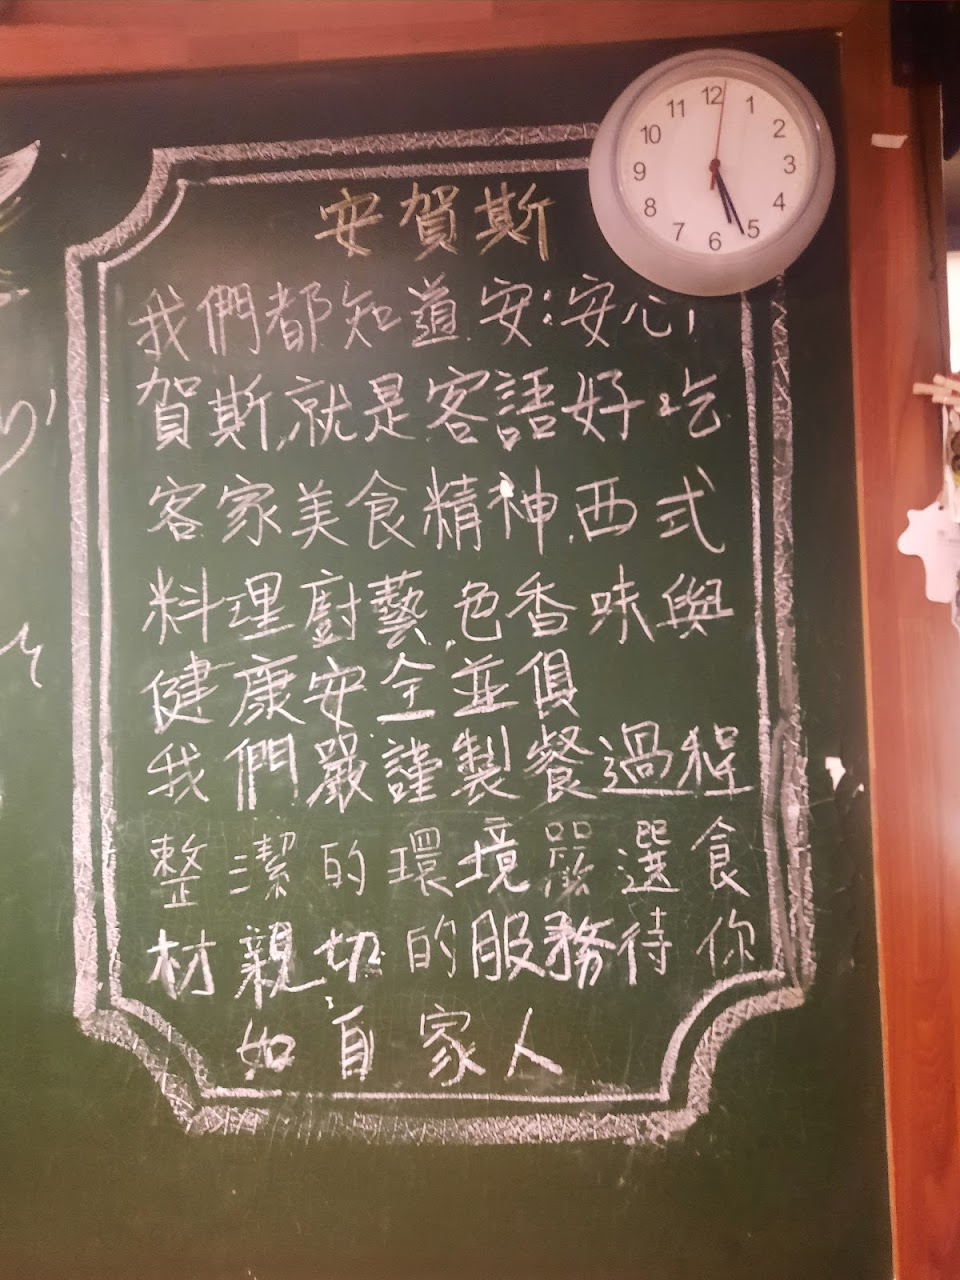 安賀斯
我們都知道安:安心,
賀斯,就是客語好吃
客家美食精神.西式
料理廚藝,色香味與
健康安全並俱
我們嚴謹製餐過程
整潔的環境嚴選食
材親切的服務待你
如自家人
12
1
2
3
4
5
6
7
8
9
10
11